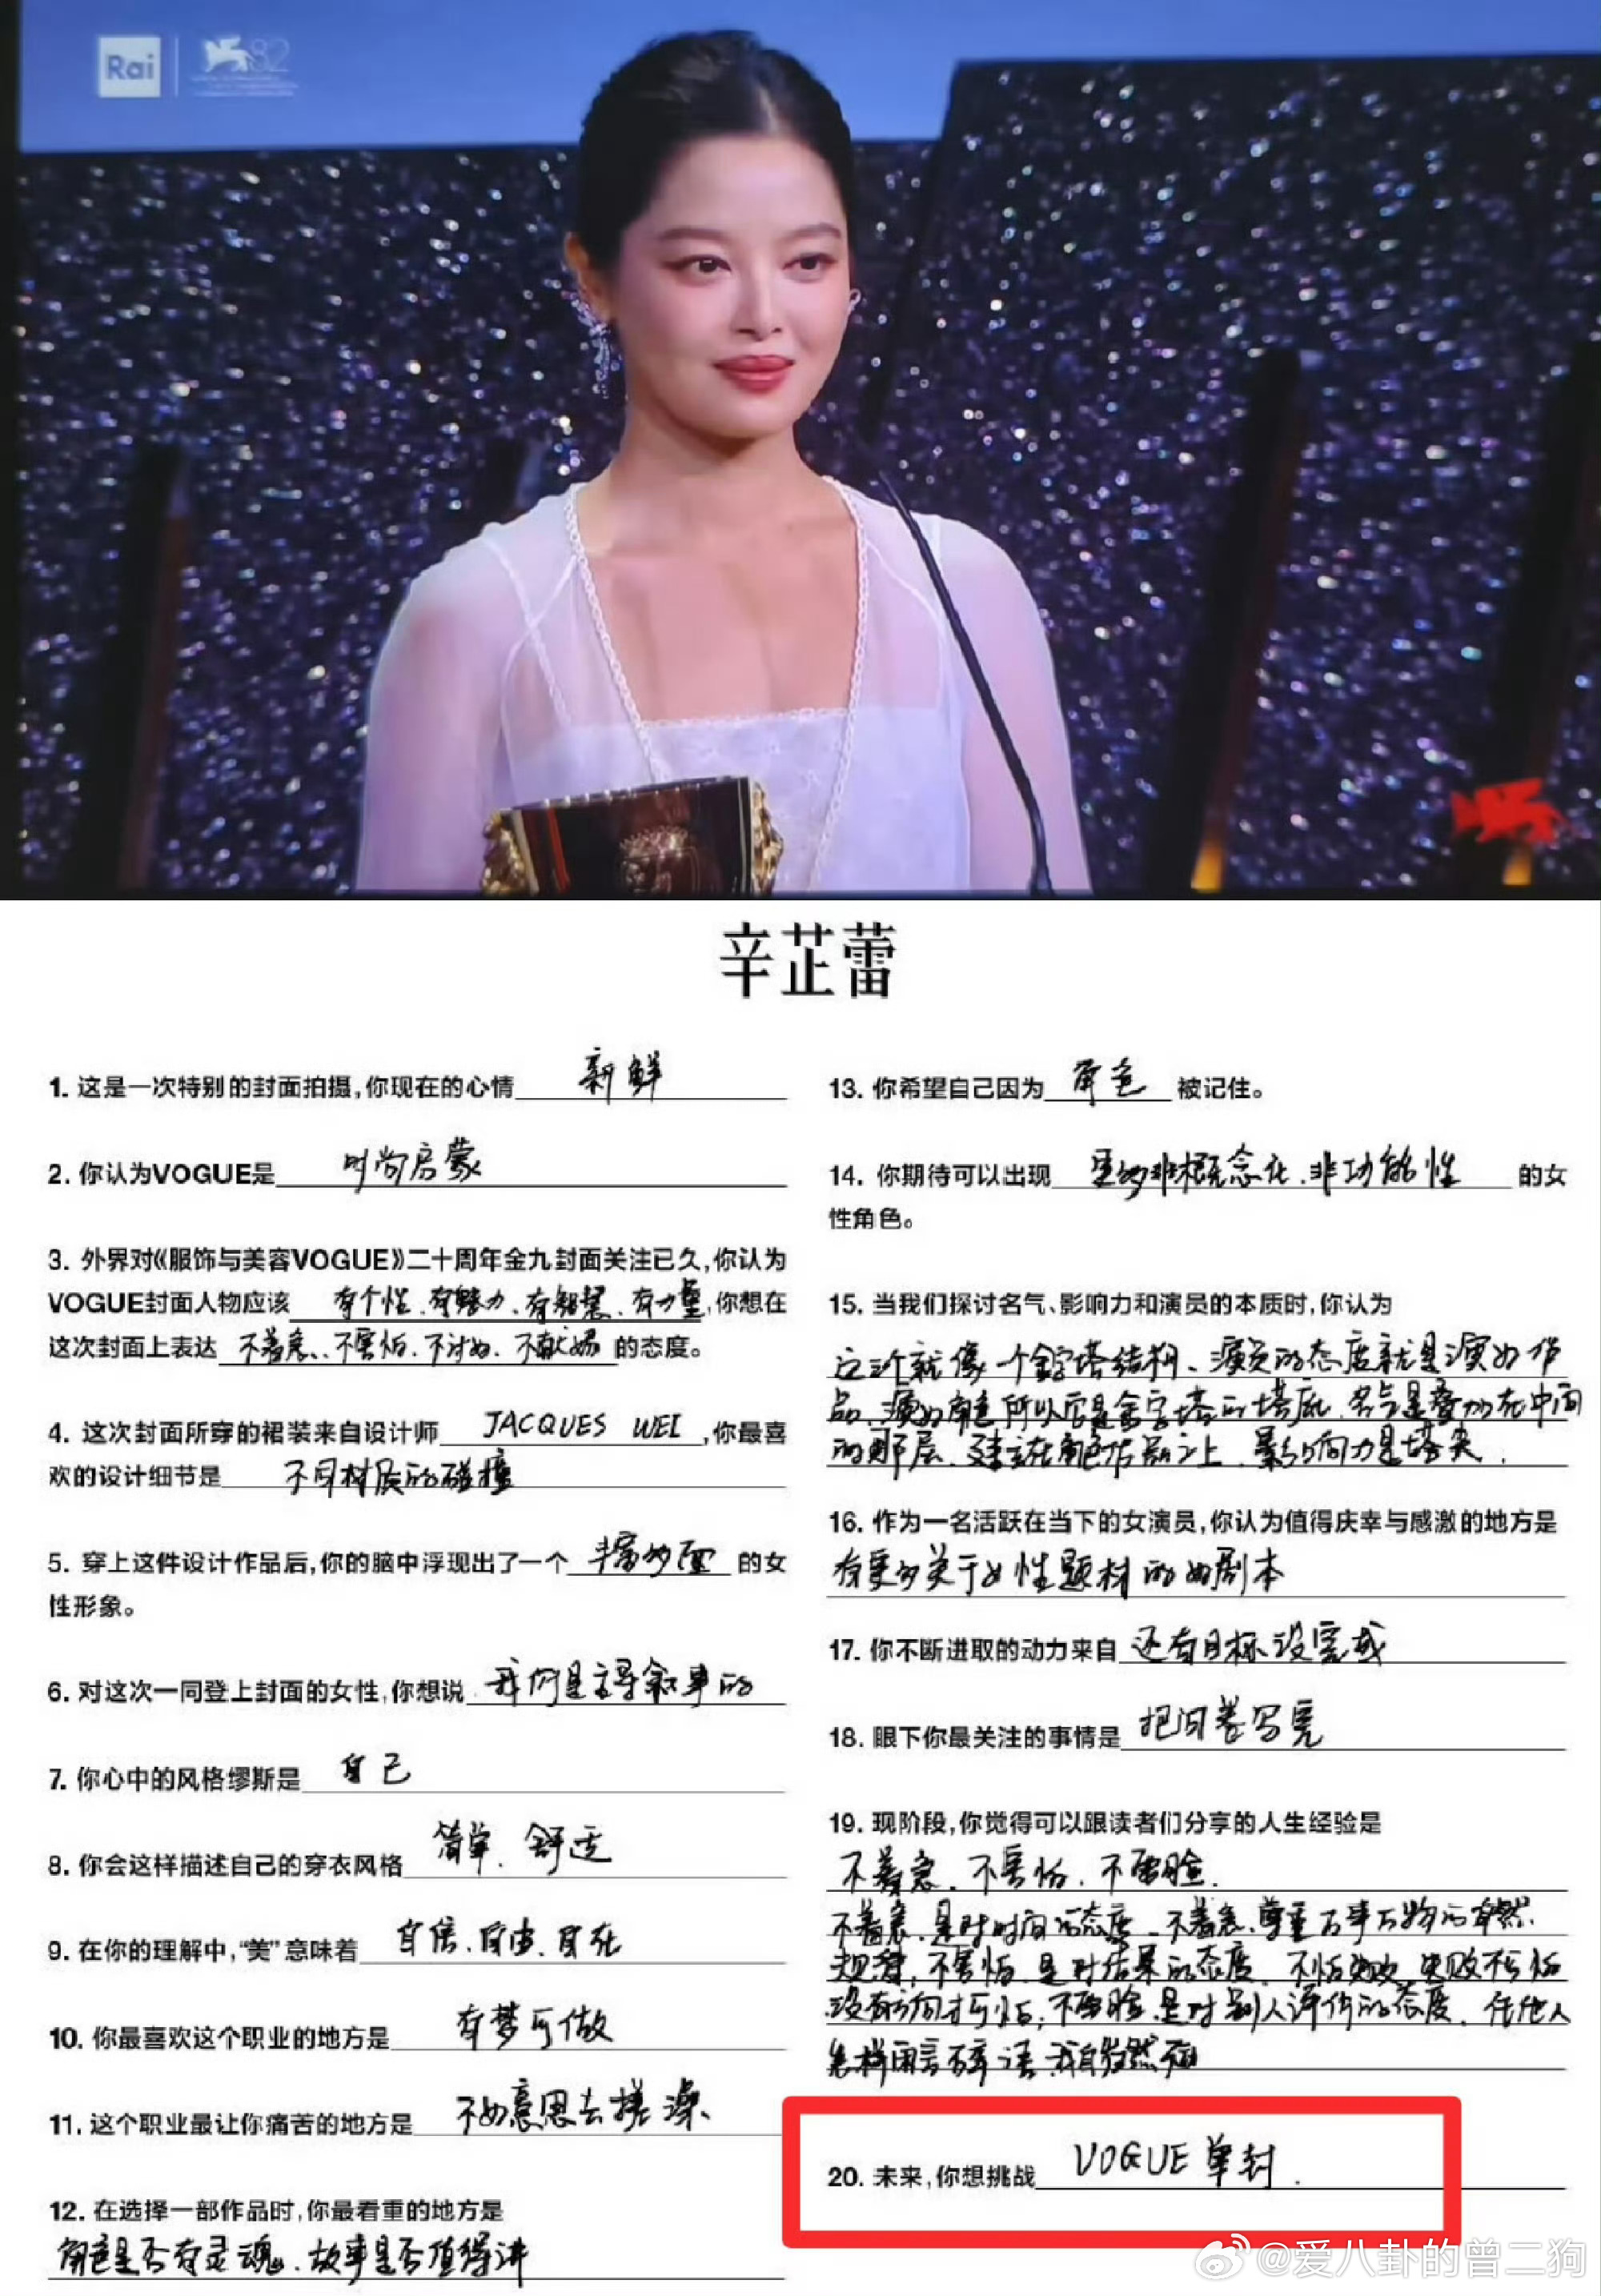 Rai
82
辛芷蕾
1. 这是一次特别的封面拍摄,你现在的心情 新鲜
2. 你认为VOGUE是 时尚启蒙
3. 外界对《服饰与美容VOGUE》二十周年金九封面关注已久,你认为
VOGUE封面人物应该 有个性、有魅力、有智慧、有力量,你想在
这次封面上表达 不着急、不害怕、不讨好、不献媚 的态度。
4. 这次封面所穿的裙装来自设计师 JACQUES WEI,你最喜
欢的设计细节是 不同材质的碰撞
5. 穿上这件设计作品后,你的脑中浮现出了一个 丰富多面 的女
性形象。
6. 对这次一同登上封面的女性,你想说 我们是主导叙事的
7. 你心中的风格缪斯是 自己
8. 你会这样描述自己的穿衣风格 简单、舒适
9. 在你的理解中,“美”意味着 自信、自由、自在
10. 你最喜欢这个职业的地方是 有梦可做
11. 这个职业最让你痛苦的地方是 不好意思去搓澡、
12. 在选择一部作品时,你最看重的地方是
角色是否有灵魂、故事是否值得讲
13. 你希望自己因为 角色 被记住。
14. 你期待可以出现 更多非概念化、非功能性 的女
性角色。
15. 当我们探讨名气、影响力和演员的本质时,你认为
这个就像一个金字塔结构、演员的态度就是演好作
品、演好角色所以它是金字塔的塔底,名气是叠加在中间
的那层、建立在角色作品之上,影响力是塔尖,
16. 作为一名活跃在当下的女演员,你认为值得庆幸与感激的地方是
有更多关于女性题材的好剧本
17. 你不断进取的动力来自 还有目标没完成
18. 眼下你最关注的事情是 把问卷写完
19. 现阶段,你觉得可以跟读者们分享的人生经验是
不着急、不害怕、不要脸.
不着急、是对时间的态度、不着急、尊重万事万物的自然
规律,不害怕、是对结果的态度、不怕失败、失败不可怕
没有方向才可怕,不要脸、是对别人评价的态度、任他人
怎样闲言碎语,我自岿然不动
20. 未来,你想挑战 VOGUE 单封.
@爱八卦的曾二狗